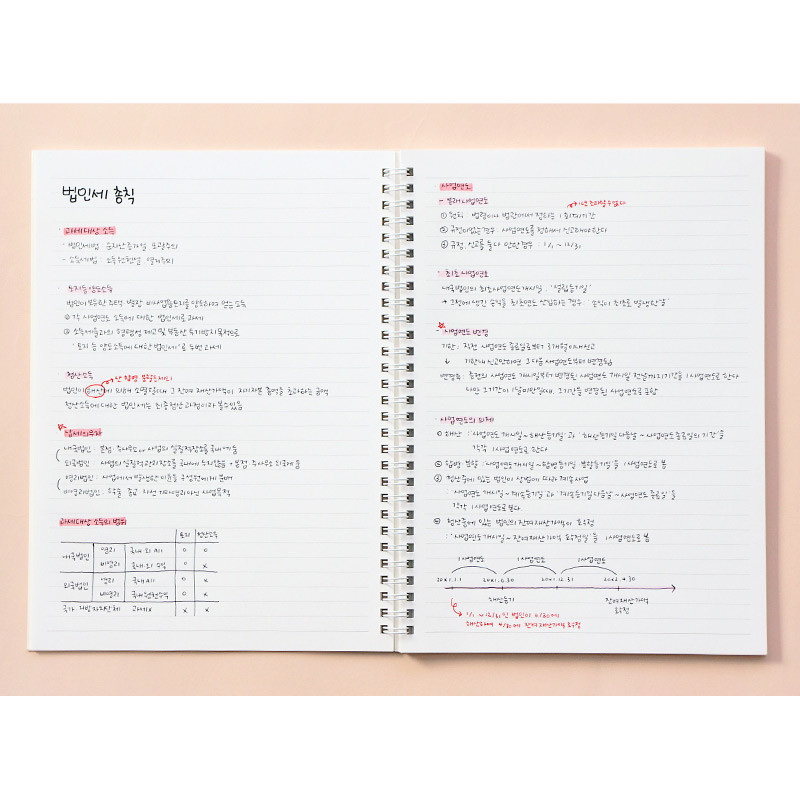 법인세 총칙
과세대상 소득
- 법인세법 : 순자산 증가설, 포괄주의
- 소득세법 : 소득원천설, 열거주의
토지등 양도소득
법인이 보유한 주택, 별장, 비사업용토지를 양도하여 얻는 소득
① 각 사업연도 소득에 대한 법인세로 과세
② 소득세율과의 형평성 제고 및 부동산 투기방지 목적으로
'토지 등 양도소득에 대한 법인세'로 두번 과세
청산소득
단, 합병·분할은 제외
법인이 해산에 의해 소멸할 때 그 잔여재산가액이 자기자본 총액을 초과하는 금액
청산소득에 대한 법인세는 최종청산 과정이라 볼 수 있음
납세의무자
내국법인 : 본점, 주사무소 or 사업의 실질적장소를 국내에 둠
외국법인 : 사업의 실질적관리장소를 국내에 두지않음 + 본점, 주사무소 외국에 둠
영리법인 : 사업에서 발생한 이윤을 구성원에게 분배
비영리법인 : 학술, 종교, 자선 기타 영리아닌 사업목적
과세대상 소득의 범위
토지 청산소득
내국법인 영리 국내·외 All o o
비영리 국내·외 수익 o x
외국법인 영리 국내 All o x
비영리 국내원천수익 o x
국가, 지방자치단체 과세 x x x
사업연도
- 본래 사업연도
1년 초과할 수 없다
① 원칙 : 법령이나 법인에서 정하는 1회계기간
② 규정이 없는 경우 : 사업연도를 정해서 신고하여야 한다
③ 규정, 신고를 둘다 안한 경우 : 1/1 ~ 12/31
최초 사업연도
내국법인의 최초사업연도 개시일 : '설립등기일'
→ 그전에 생긴 손익을 최초연도 산입하는 경우 : '손익이 최초로 발생한 날'
사업연도 변경
기한 : 직전 사업연도 종료일로부터 3개월이내 신고
↓ 기한내 신고 안하면 그 다음 사업연도부터 변경됨
변경연도 : 종전의 사업연도 개시일부터 변경된 사업연도 개시일 전날까지 기간을 1사업연도로 한다
다만 그 기간이 1달미만일때, 그기간을 변경된 사업연도로 포함
사업연도의 의제
① 해산 : '사업연도 개시일 ~ 해산등기일'과 '해산등기일 다음날 ~ 사업연도 종료일의 기간'을
각각 1사업연도로 한다
② 합병·분할 : '사업연도 개시일 ~ 합병등기일·분할등기일'을 1사업연도로 봄
③ 청산중에 있는 법인이 상법에 따라 계속사업
: '사업연도 개시일 ~ 계속등기일'과 '계속등기일 다음날 ~ 사업연도 종료일'을
각각 1사업연도로 본다
④ 청산중에 있는 법인의 잔여재산가액이 확정
: '사업연도 개시일 ~ 잔여재산가액 확정일'을 1사업연도로 봄
1사업연도 1사업연도 1사업연도
20x1.1.1 20x1.6.30 20x1.12.31 20x2.4.30
해산등기 잔여재산가액
확정
1/1 ~ 12/31인 법인이 6/30에
해산하여 4/30에 잔여재산가액 확정